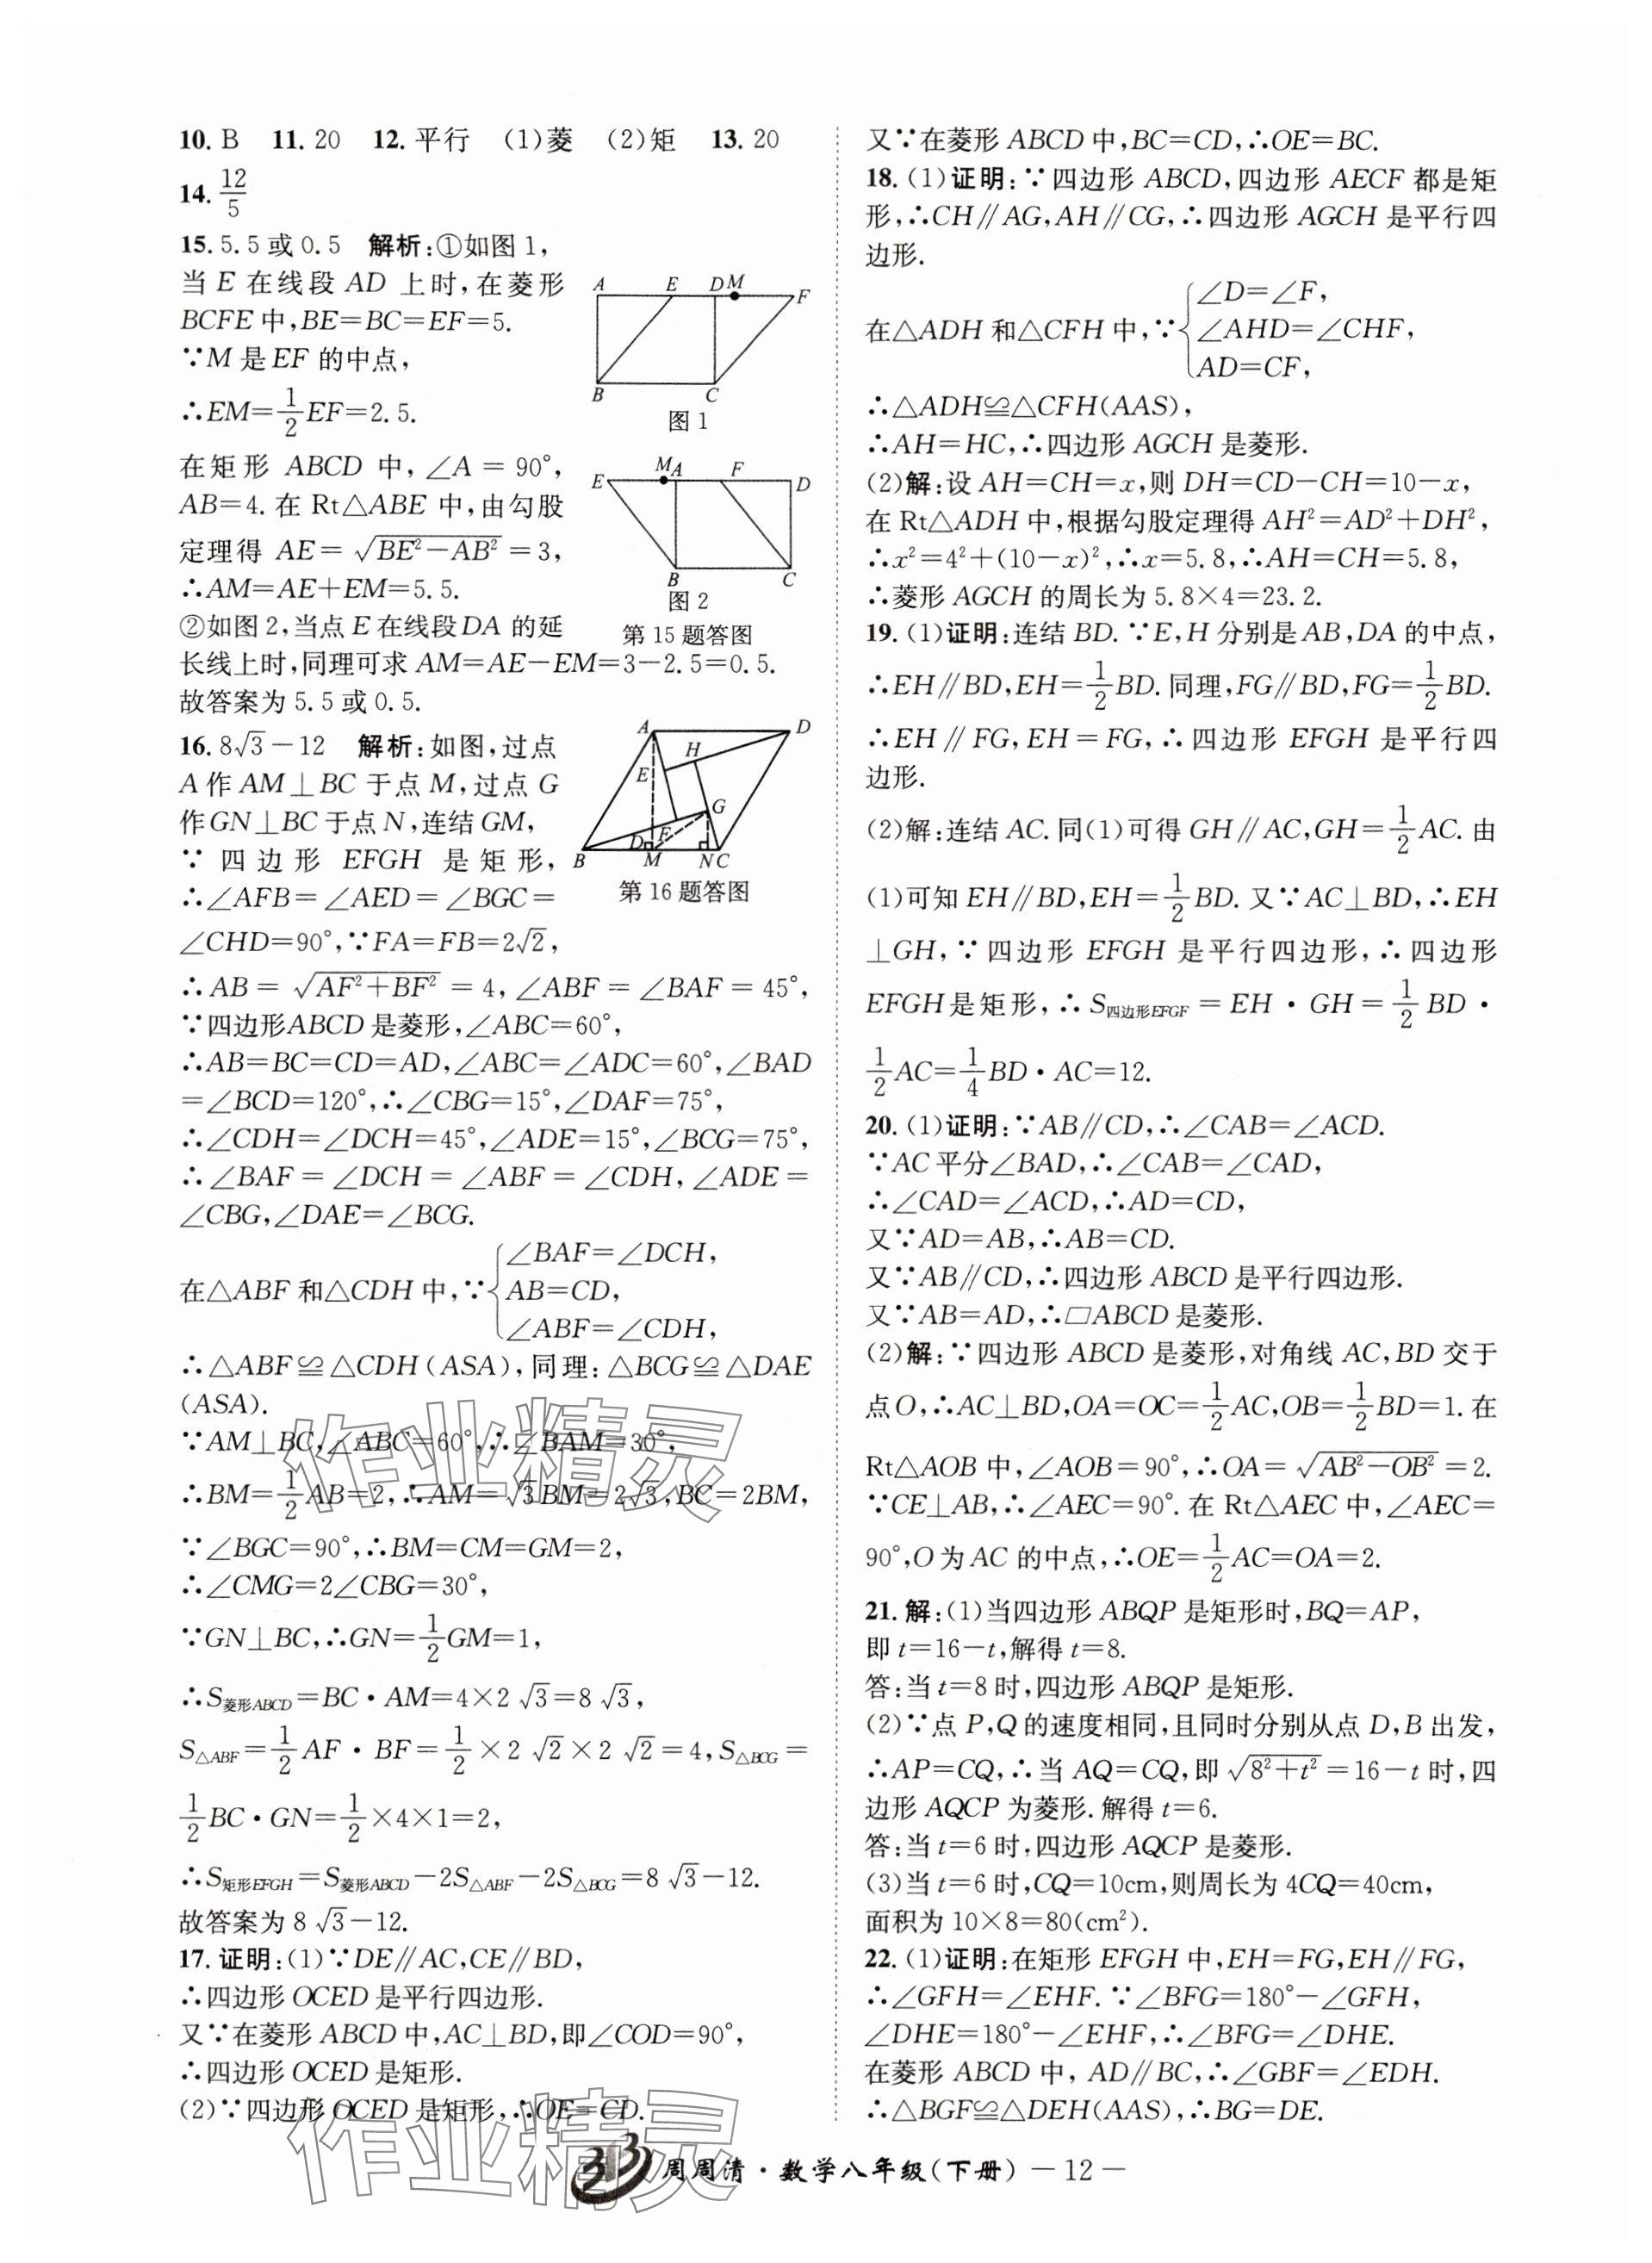 10. B　11. 20　12. 平行　(1)菱　(2)矩　13. 20
14. 12/5
15. 5.5或0.5　解析:①如图1,
当E在线段AD上时,在菱形
BCFE中,BE=BC=EF=5.
∵M是EF的中点,
∴EM=1/2EF=2.5.
在矩形ABCD中,∠A=90°,
AB=4.在Rt△ABE中,由勾股
定理得AE=√(BE²-AB²)=3,
∴AM=AE+EM=5.5.
②如图2,当点E在线段DA的延
长线上时,同理可求AM=AE-EM=3-2.5=0.5.
故答案为5.5或0.5.
A E D M F
B C
图1
E M A F D
B C
图2
第15题答图
16. 8√3-12　解析:如图,过点
A作AM⊥BC于点M,过点G
作GN⊥BC于点N,连结GM,
∵四边形EFGH是矩形,
∴∠AFB=∠AED=∠BGC=
∠CHD=90°,∵FA=FB=2√2,
A D
H
E
G
D F
B M N C
第16题答图
∴AB=√(AF²+BF²)=4,∠ABF=∠BAF=45°,
∵四边形ABCD是菱形,∠ABC=60°,
∴AB=BC=CD=AD,∠ABC=∠ADC=60°,∠BAD
=∠BCD=120°,∴∠CBG=15°,∠DAF=75°,
∴∠CDH=∠DCH=45°,∠ADE=15°,∠BCG=75°,
∴∠BAF=∠DCH=∠ABF=∠CDH,∠ADE=
∠CBG,∠DAE=∠BCG.
∠BAF=∠DCH,
在△ABF和△CDH中,∵{AB=CD,
∠ABF=∠CDH,
∴△ABF≌△CDH(ASA),同理:△BCG≌△DAE
(ASA).
∵AM⊥BC,∠ABC=60°,∴∠BAM=30°,
∴BM=1/2AB=2,∴AM=√3BM=2√3,BC=2BM,
∵∠BGC=90°,∴BM=CM=GM=2,
∴∠CMG=2∠CBG=30°,
∵GN⊥BC,∴GN=1/2GM=1,
∴S菱形ABCD=BC·AM=4×2√3=8√3,
S△ABF=1/2AF·BF=1/2×2√2×2√2=4,S△BCG=
1/2BC·GN=1/2×4×1=2,
∴S矩形EFGH=S菱形ABCD-2S△ABF-2S△BCG=8√3-12.
故答案为8√3-12.
17. 证明:(1)∵DE∥AC,CE∥BD,
∴四边形OCED是平行四边形.
又∵在菱形ABCD中,AC⊥BD,即∠COD=90°,
∴四边形OCED是矩形.
(2)∵四边形OCED是矩形,∴OE=CD.
又∵在菱形ABCD中,BC=CD,∴OE=BC.
18. (1)证明:∵四边形ABCD,四边形AECF都是矩
形,∴CH∥AG,AH∥CG,∴四边形AGCH是平行四
边形.
∠D=∠F,
在△ADH和△CFH中,∵{∠AHD=∠CHF,
AD=CF,
∴△ADH≌△CFH(AAS),
∴AH=HC,∴四边形AGCH是菱形.
(2)解:设AH=CH=x,则DH=CD-CH=10-x,
在Rt△ADH中,根据勾股定理得AH²=AD²+DH²,
∴x²=4²+(10-x)²,∴x=5.8,∴AH=CH=5.8,
∴菱形AGCH的周长为5.8×4=23.2.
19. (1)证明:连结BD.∵E,H分别是AB,DA的中点,
∴EH∥BD,EH=1/2BD.同理,FG∥BD,FG=1/2BD.
∴EH∥FG,EH=FG,∴四边形EFGH是平行四
边形.
(2)解:连结AC.同(1)可得GH∥AC,GH=1/2AC.由
(1)可知EH∥BD,EH=1/2BD.又∵AC⊥BD,∴EH
⊥GH,∵四边形EFGH是平行四边形,∴四边形
EFGH是矩形,∴S四边形EFGF=EH·GH=1/2BD·
1/2AC=1/4BD·AC=12.
20. (1)证明:∵AB∥CD,∴∠CAB=∠ACD.
∵AC平分∠BAD,∴∠CAB=∠CAD,
∴∠CAD=∠ACD,∴AD=CD,
又∵AD=AB,∴AB=CD.
又∵AB∥CD,∴四边形ABCD是平行四边形.
又∵AB=AD,∴▱ABCD是菱形.
(2)解:∵四边形ABCD是菱形,对角线AC,BD交于
点O,∴AC⊥BD,OA=OC=1/2AC,OB=1/2BD=1.在
Rt△AOB中,∠AOB=90°,∴OA=√(AB²-OB²)=2.
∵CE⊥AB,∴∠AEC=90°.在Rt△AEC中,∠AEC=
90°,O为AC的中点,∴OE=1/2AC=OA=2.
21. 解:(1)当四边形ABQP是矩形时,BQ=AP,
即t=16-t,解得t=8.
答:当t=8时,四边形ABQP是矩形.
(2)∵点P,Q的速度相同,且同时分别从点D,B出发,
∴AP=CQ,∴当AQ=CQ,即√(8²+t²)=16-t时,四
边形AQCP为菱形.解得t=6.
答:当t=6时,四边形AQCP是菱形.
(3)当t=6时,CQ=10cm,则周长为4CQ=40cm,
面积为10×8=80(cm²).
22. (1)证明:在矩形EFGH中,EH=FG,EH∥FG,
∴∠GFH=∠EHF.∵∠BFG=180°-∠GFH,
∠DHE=180°-∠EHF,∴∠BFG=∠DHE.
在菱形ABCD中,AD∥BC,∴∠GBF=∠EDH.
∴△BGF≌△DEH(AAS),∴BG=DE.
周周清·数学八年级(下册) —12—
作业精灵
作业精灵